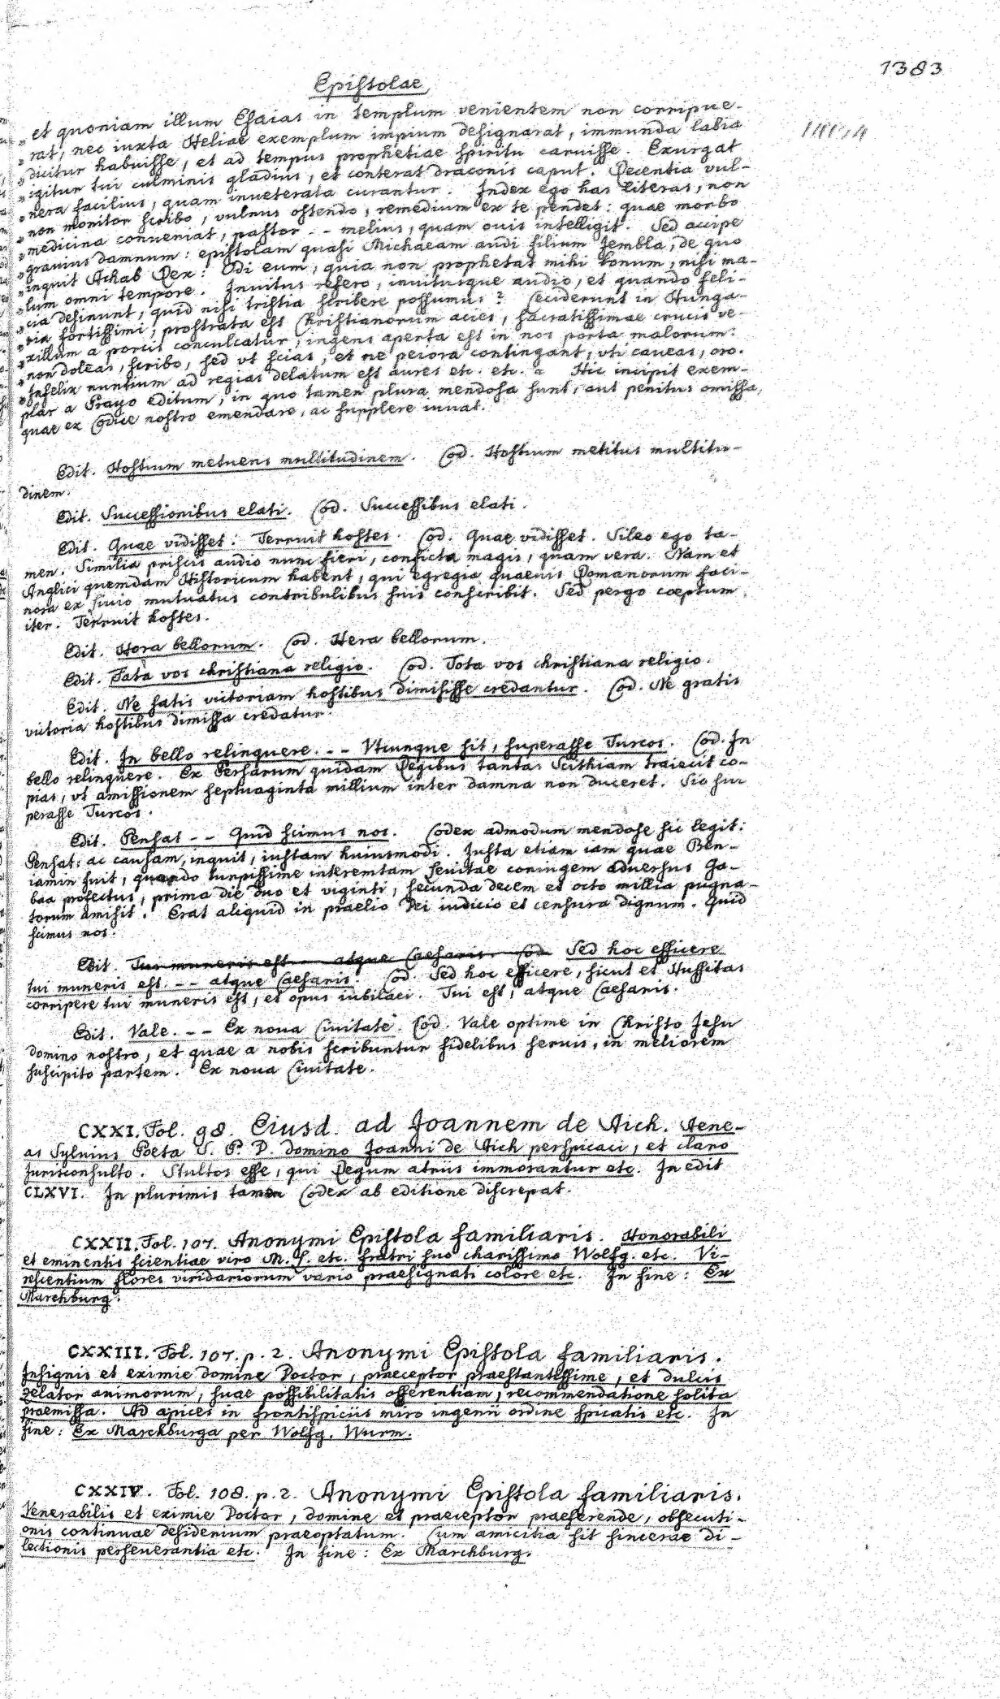 1383
Epistolae
„et quoniam illum Esaias in templum venientem non corripue-
„rat, nec iuxta Heliae exemplum impium designarat, immunda labia
„dicitur habuisse, et ad tempus prophetiae spiritu caruisse. Exurgat
„igitur tui culminis gladius, et conterat draconis caput. Recentia vul-
„nera facilius, quam inveterata curantur. Index ego has literas, non
„non monitor scribo, vulnus ostendo, remedium ex te pendet: quae morbo
„medicina conveniat, pastor -- melius, quam ouis intelligit. Sed accipe
„gravius damnum: epistolam quasi Michaeam audi filium Jembla, de quo
„inquit Achab Rex: Odi eum, quia non prophetat mihi bonum, nisi ma-
„lum omni tempore. Invitus refero, invitusque audio, et quando feli-
„cia desinunt, quid nisi tristia scribere possumus? Ceciderunt in Hunga-
„ria fortissimi, prostrata est Christianorum acies, sacratissimae crucis ve-
„xillum a porcis conculcatur, ingens aperta est in nos porta malorum:
„non doleas, scribo, sed vt scias, et ne peiora contingant, vti caveas, oro.
„Infelix nuntium ad regias delatum est aures etc. etc. a Hic incipit exem-
plar a Prayo editum, in quo tamen plura mendosa sunt, aut penitus omissa,
quae ex Codice nostro emendare, ac supplere iuvat.
Edit. Hostium metuens multitudinem. Cod. Hostium metitus multitu-
dinem.
Edit. Successionibus elati. Cod. Successibus elati.
Edit. Quae vidisset. Terruit hostes. Cod. Quae vidisset. Sileo ego ta-
men. Similia priscis audio nunc fieri, conficta magis, quam vera. Nam et
Anglici quemdam Historicum habent, qui egregia quaevis Romanorum faci-
nora ex Livio mutuatus contribulibus suis conscribit. Sed pergo coeptum
iter. Terruit hostes.
Edit. Hora bellorum. Cod. Hera bellorum.
Edit. Fata vos christiana religio. Cod. Tota vos christiana religio.
Edit. Ne fatis victoriam hostibus dimisisse credantur. Cod. Ne gratis
victoria hostibus dimissa credatur.
Edit. In bello relinquere. -- Vtcunque sit, superasse Turcos. Cod. In
bello relinquere. Ex Persarum quidam Regibus tantas Scithiam traiecit co-
pias, vt amissionem septuaginta millium inter damna non duceret. Sic su-
perasse Turcos.
Edit. Pensat -- Quid scimus nos. Codex admodum mendose sic legit:
Pensat: ac causam, inquit, iustam huiusmodi. Justa etiam iam quae Ben-
iamin fuit, quando turpissime interemtam Levitae coniugem adversus Ga-
baa profectus, prima die duo et viginti, secunda decem et octo millia pugna-
torum amisit. Erat aliquid in praelio Dei iudicio et censura dignum. Quid
scimus nos.
Edit. Tui muneris est -- atque Caesaris. Cod Sed hoc efficere
tui muneris est. -- atque Caesaris. Cod. Sed hoc efficere, sicut et Hussitas
corripere tui muneris est, et opus iubilaei. Tui est, atque Caesaris.
Edit. Vale. -- Ex noua Civitate. Cod. Vale optime in Christo Jesu
domino nostro, et quae a nobis scribuntur fidelibus servis, in meliorem
suscipito partem. Ex noua Civitate.
CXXI. Fol. 98. Eiusd. ad Joannem de Aich. Aene-
as Sylvius Poeta S. P. D. domino Joanni de Aich perspicaci, et claro
Jurisconsulto. Stultos esse, qui Regum atriis immorantur etc. In edit
CLXVI. In plurimis tamen Codex ab editione discrepat.
CXXII. Fol. 107. Anonymi Epistola familiaris. Honorabili
et eminentis scientiae viro M. S. etc. fratri suo charissimo Wolfg. etc. Vi-
rescentium flores viridariorum vario praesignati colore etc. In fine: Ex
Marchburg.
CXXIII. Fol. 107. p. 2. Anonymi Epistola familiaris.
Insignis et eximie domine Doctor, praeceptor praestantissime, et dulcis
zelator animorum, suae possibilitatis offerentiam, recommendatione solita
praemissa. Ad apices in frontispiciis miro ingenii ordine spicatis etc. In
fine: Ex Marckburga per Wolfg. Wurm.
CXXIV. Fol. 108. p. 2. Anonymi Epistola familiaris.
Venerabilis et eximie Doctor, domine et praeceptor praeferende, obsecuti-
onis continuae desiderium praeoptatum. Cum amicitia sit sincerae di-
lectionis perseverantia etc. In fine: Ex Marckburg.